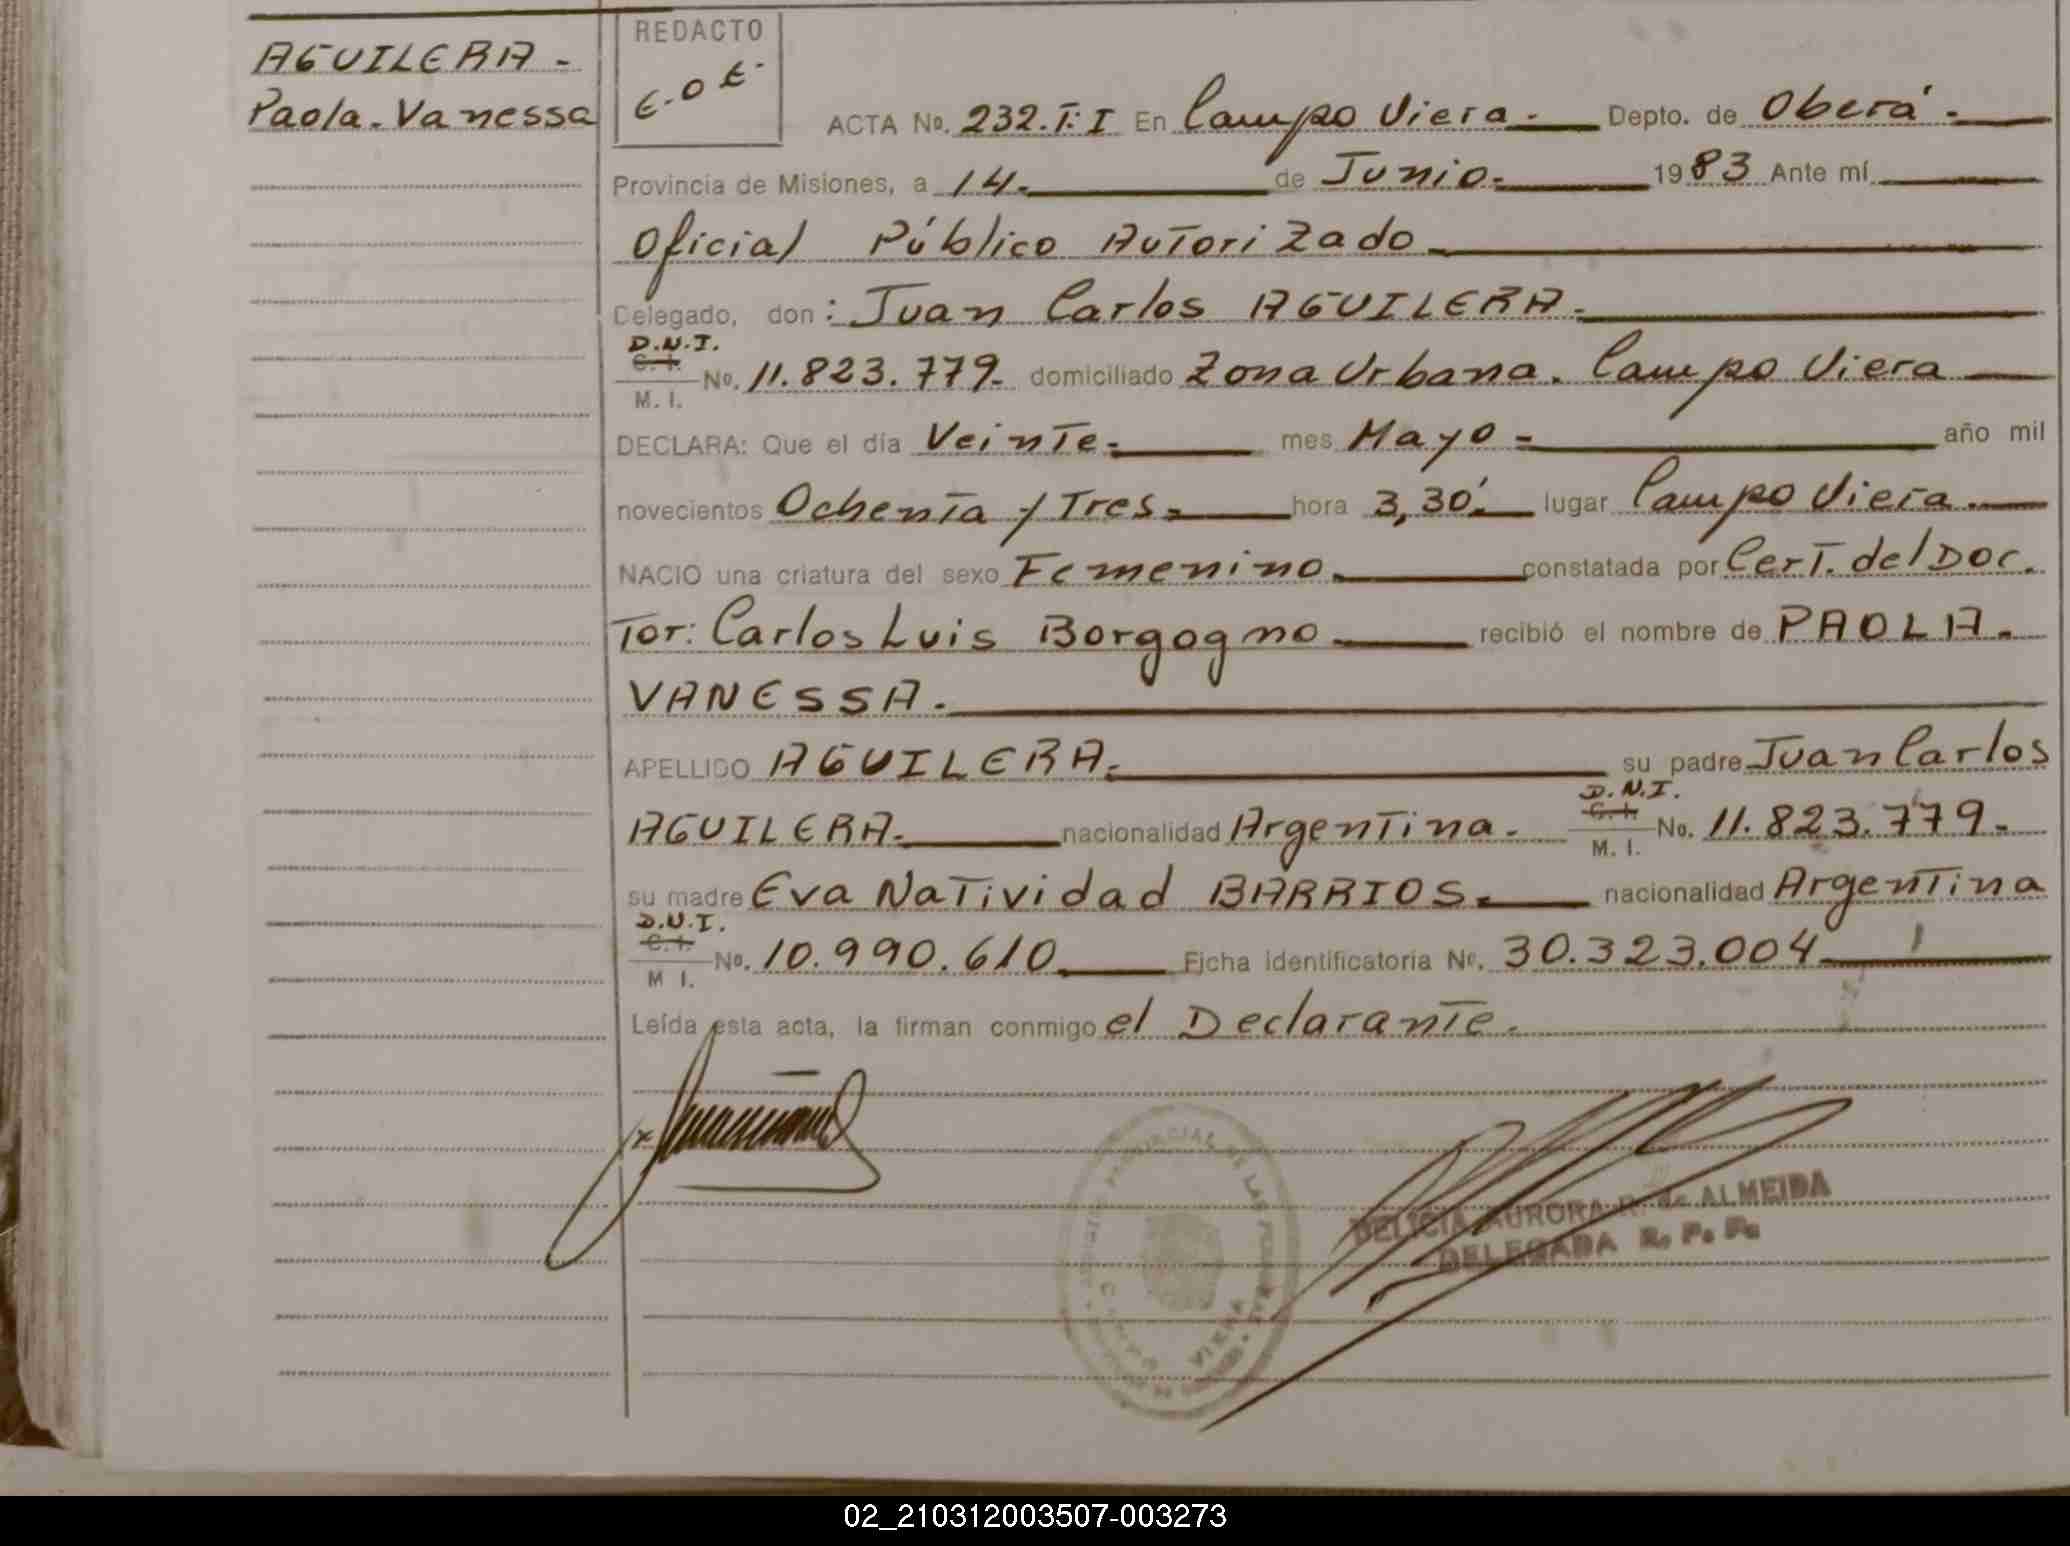 AGUILERA -
Paola. Vanessa
REDACTO
E.O.E.
ACTA No. 232.T:I En Campo Viera. Depto. de Oberá.
Provincia de Misiones, a 14. de Junio. 1983 Ante mí
Oficial Público Autorizado
Delegado, don: Juan Carlos AGUILERA.
D.N.I.
C. I.
M. I.
No. 11.823.779. domiciliado Zona Urbana. Campo Viera
DECLARA: Que el día Veinte. mes Mayo - año mil
novecientos Ochenta y Tres. hora 3,30'. lugar Campo Viera.
NACIO una criatura del sexo Femenino. constatada por Cert. del Doc.
Tor: Carlos Luis Borgogno recibió el nombre de PAOLA.
VANESSA.
APELLIDO AGUILERA. su padre Juan Carlos
D.N.I.
C. I.
AGUILERA. nacionalidad Argentina. M. I. No. 11.823.779.
su madre Eva Natividad BARRIOS. nacionalidad Argentina
D.N.I.
C. I.
M I. No. 10.990.610 Ficha identificatoria No. 30.323.004
Leída esta acta, la firman conmigo el Declarante.
PROVINCIAL DE LAS
CAMPO VIERA
DELICIA AURORA R. de ALMEIDA
DELEGADA R. P. P.
02_210312003507-003273